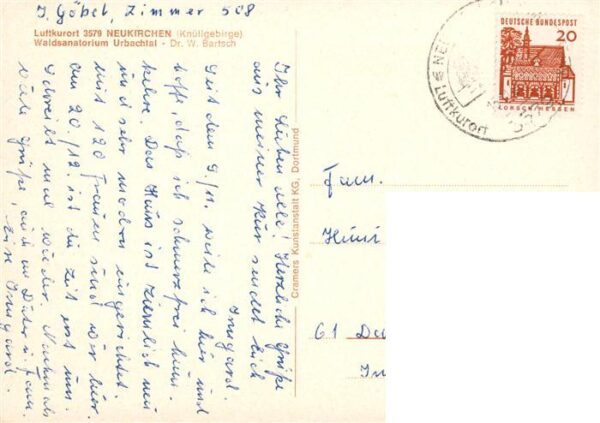 J. Göbel, Zimmer 508
Luftkurort 3579 NEUKIRCHEN (Knüllgebirge)
Waldsanatorium Urbachtal - Dr. W. Bartsch
Ihr Lieben alle! Herzliche Grüße
aus meiner Kur sendet Euch
Irmgard.
Seit dem 9./11. weile ich hier und
hoffe, daß ich schmerzfrei heim-
kehre. Das Haus ist ziemlich neu
und sehr modern eingerichtet.
Mit 120 Frauen sind wir hier.
Am 20./12. ist die Zeit erst um.
Schreibt mal wieder. Nochmals
viele Grüße, auch an Dieter u. Fam.
Eure Irmgard.
Cramers Kunstanstalt KG, Dortmund
DEUTSCHE BUNDESPOST
20
LORSCH/HESSEN
Luftkurort
Fam.
61 Da